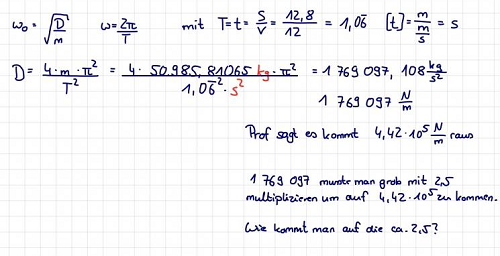 ω₀ = √(D/m)   ω = 2π/T   mit T = t = s/v = 12,8/12 = 1,06̅   [t] = m/(m/s) = s
D = 4·m·π²/T² = 4·50.985,81065 kg·π²/(1,06̅²·s²) = 1 769 097,108 kg/s²
1 769 097 N/m
Prof sagt es kommt 4,42·10⁵ N/m raus
1 769 097 müsste man grob mit 2,5
multiplizieren um auf 4,42·10⁵ zu kommen.
Wie kommt man auf die ca. 2,5?